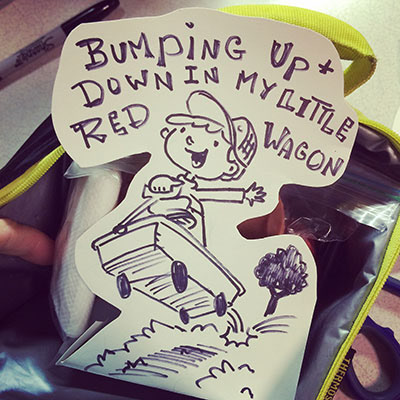 BUMPING UP +
DOWN IN MY LITTLE
RED WAGON
THERMOS